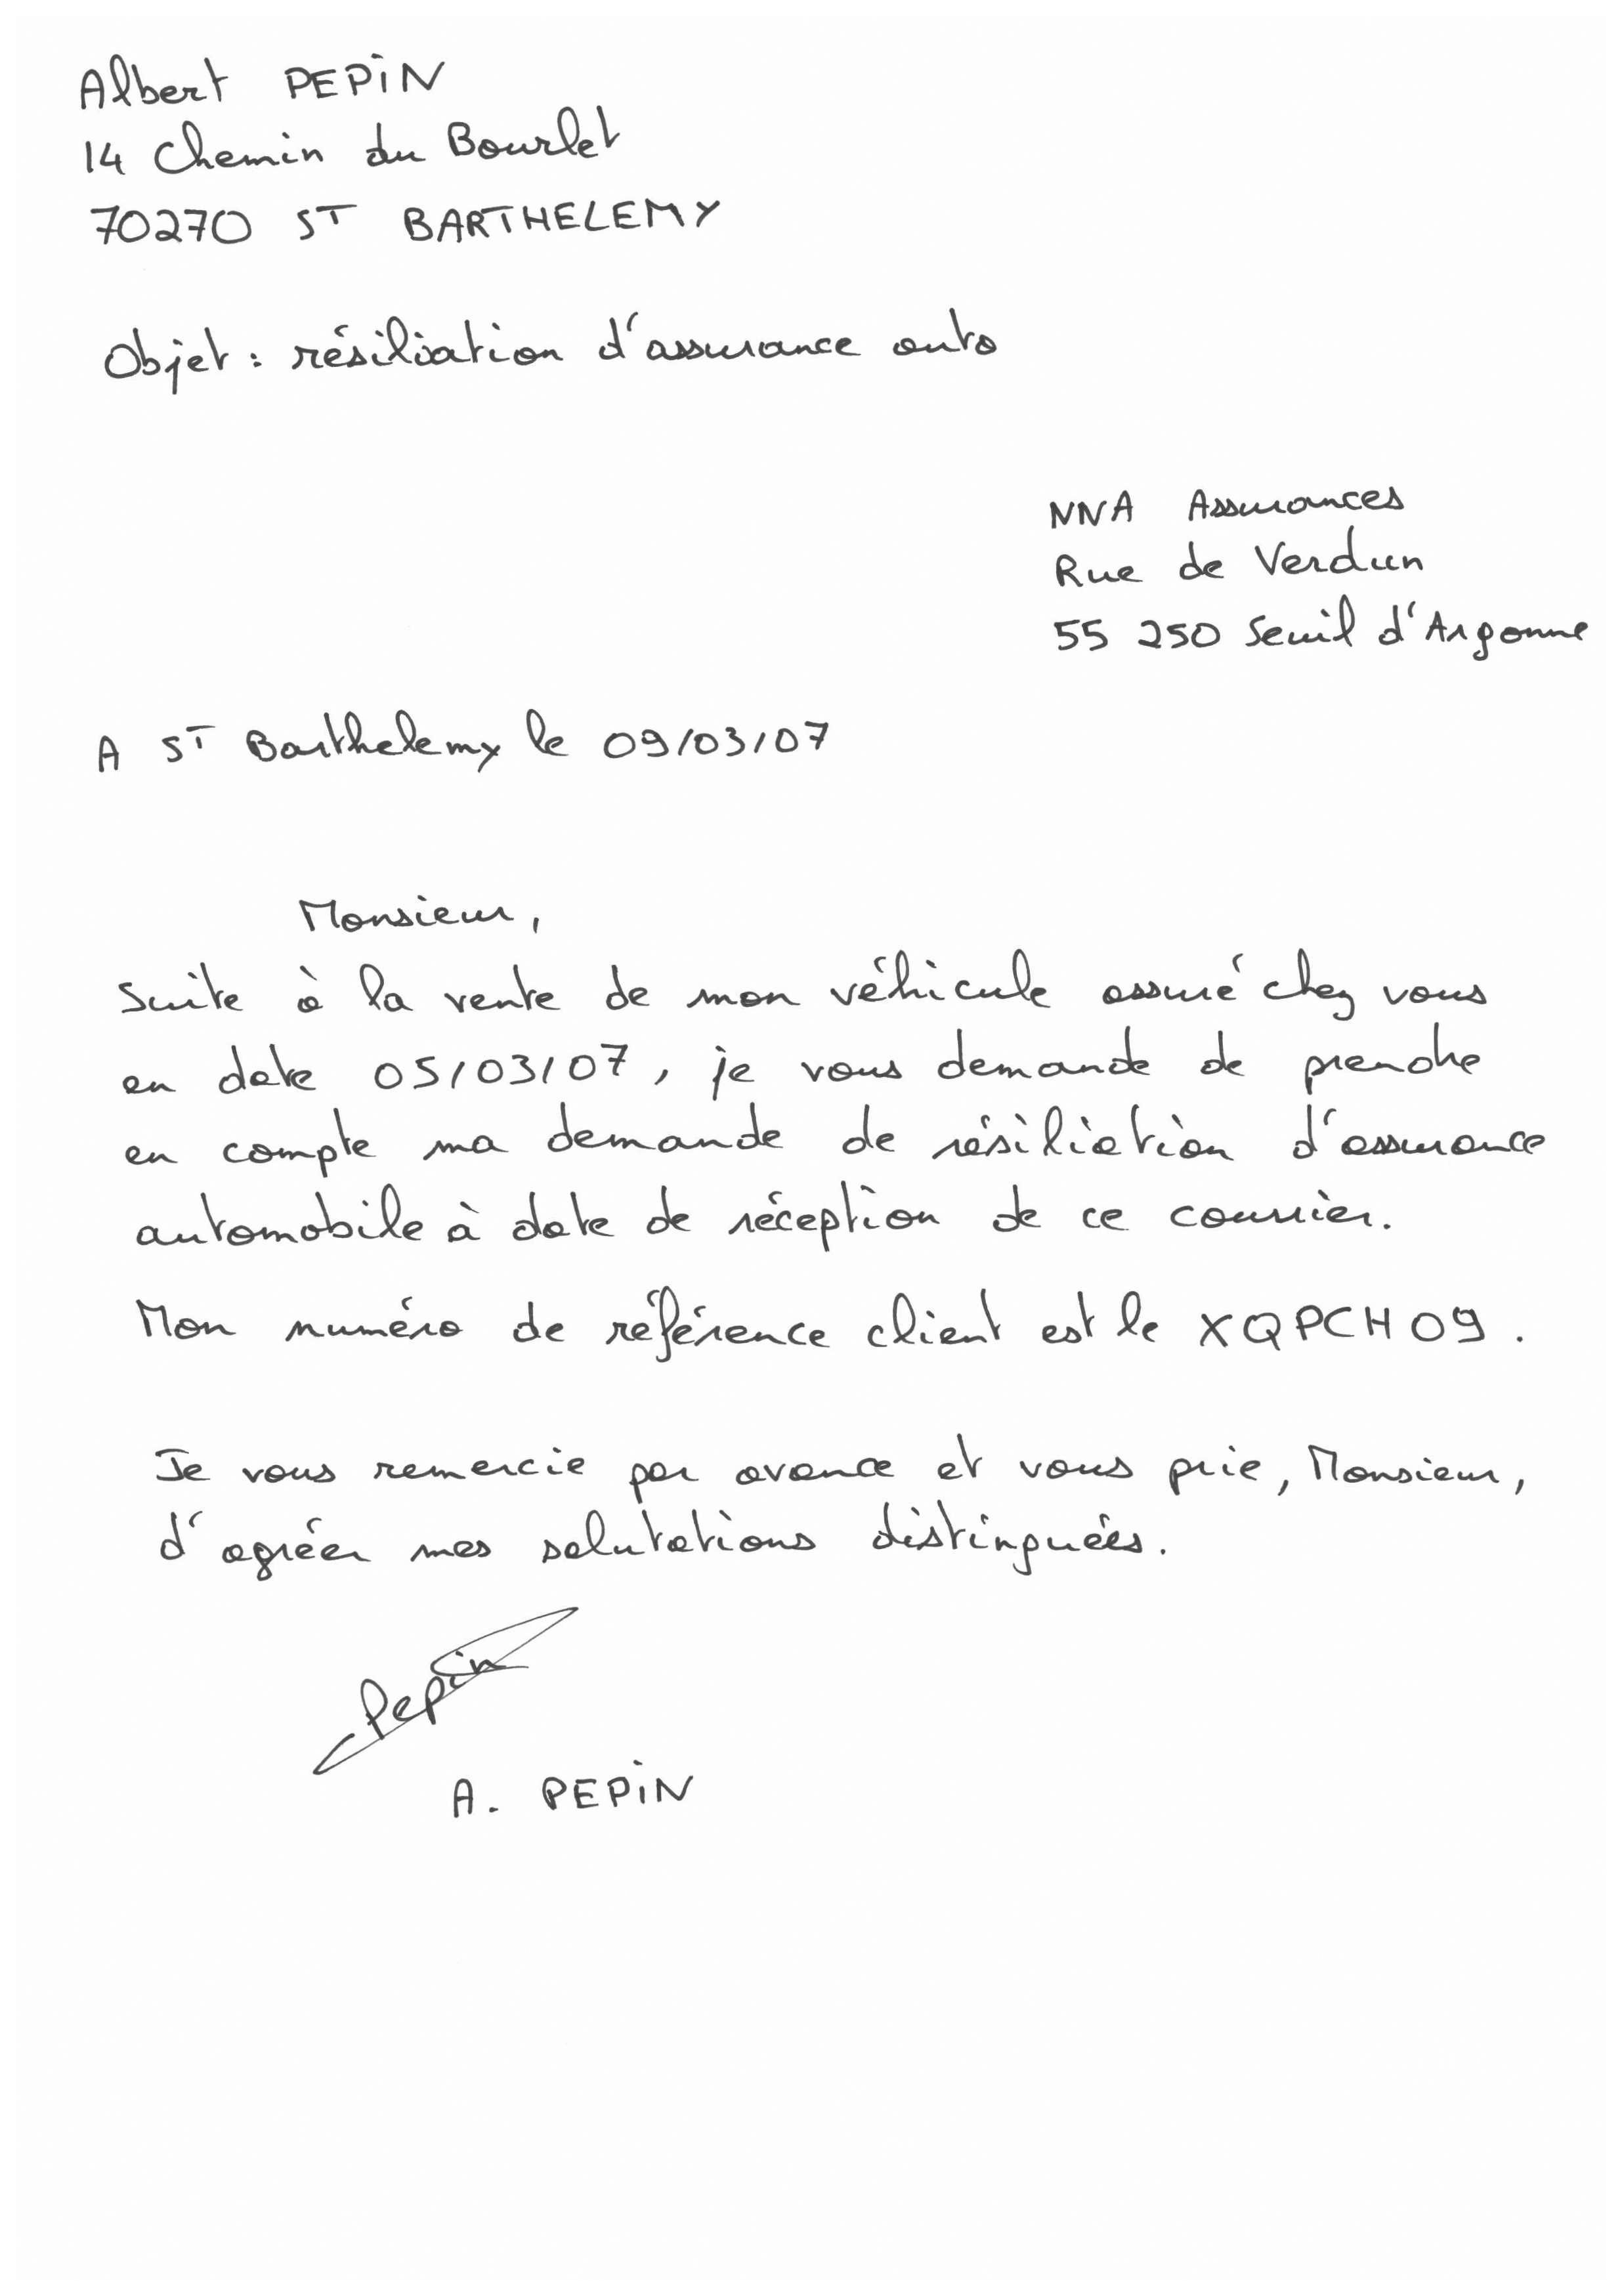 Albert PEPIN
14 Chemin du Bourlet
70270 ST BARTHELEMY
Objet : résiliation d'assurance auto
NNA Assurances
Rue de Verdun
55 250 Seuil d'Argonne
A ST Barthelemy le 09/03/07
Monsieur,
Suite à la vente de mon véhicule assuré chez vous
en date 05/03/07, je vous demande de prendre
en compte ma demande de résiliation d'assurance
automobile à date de réception de ce courrier.
Mon numéro de référence client est le XQPCH09.
Je vous remercie par avance et vous prie, Monsieur,
d'agréer mes salutations distinguées.
Pepin
A. PEPIN